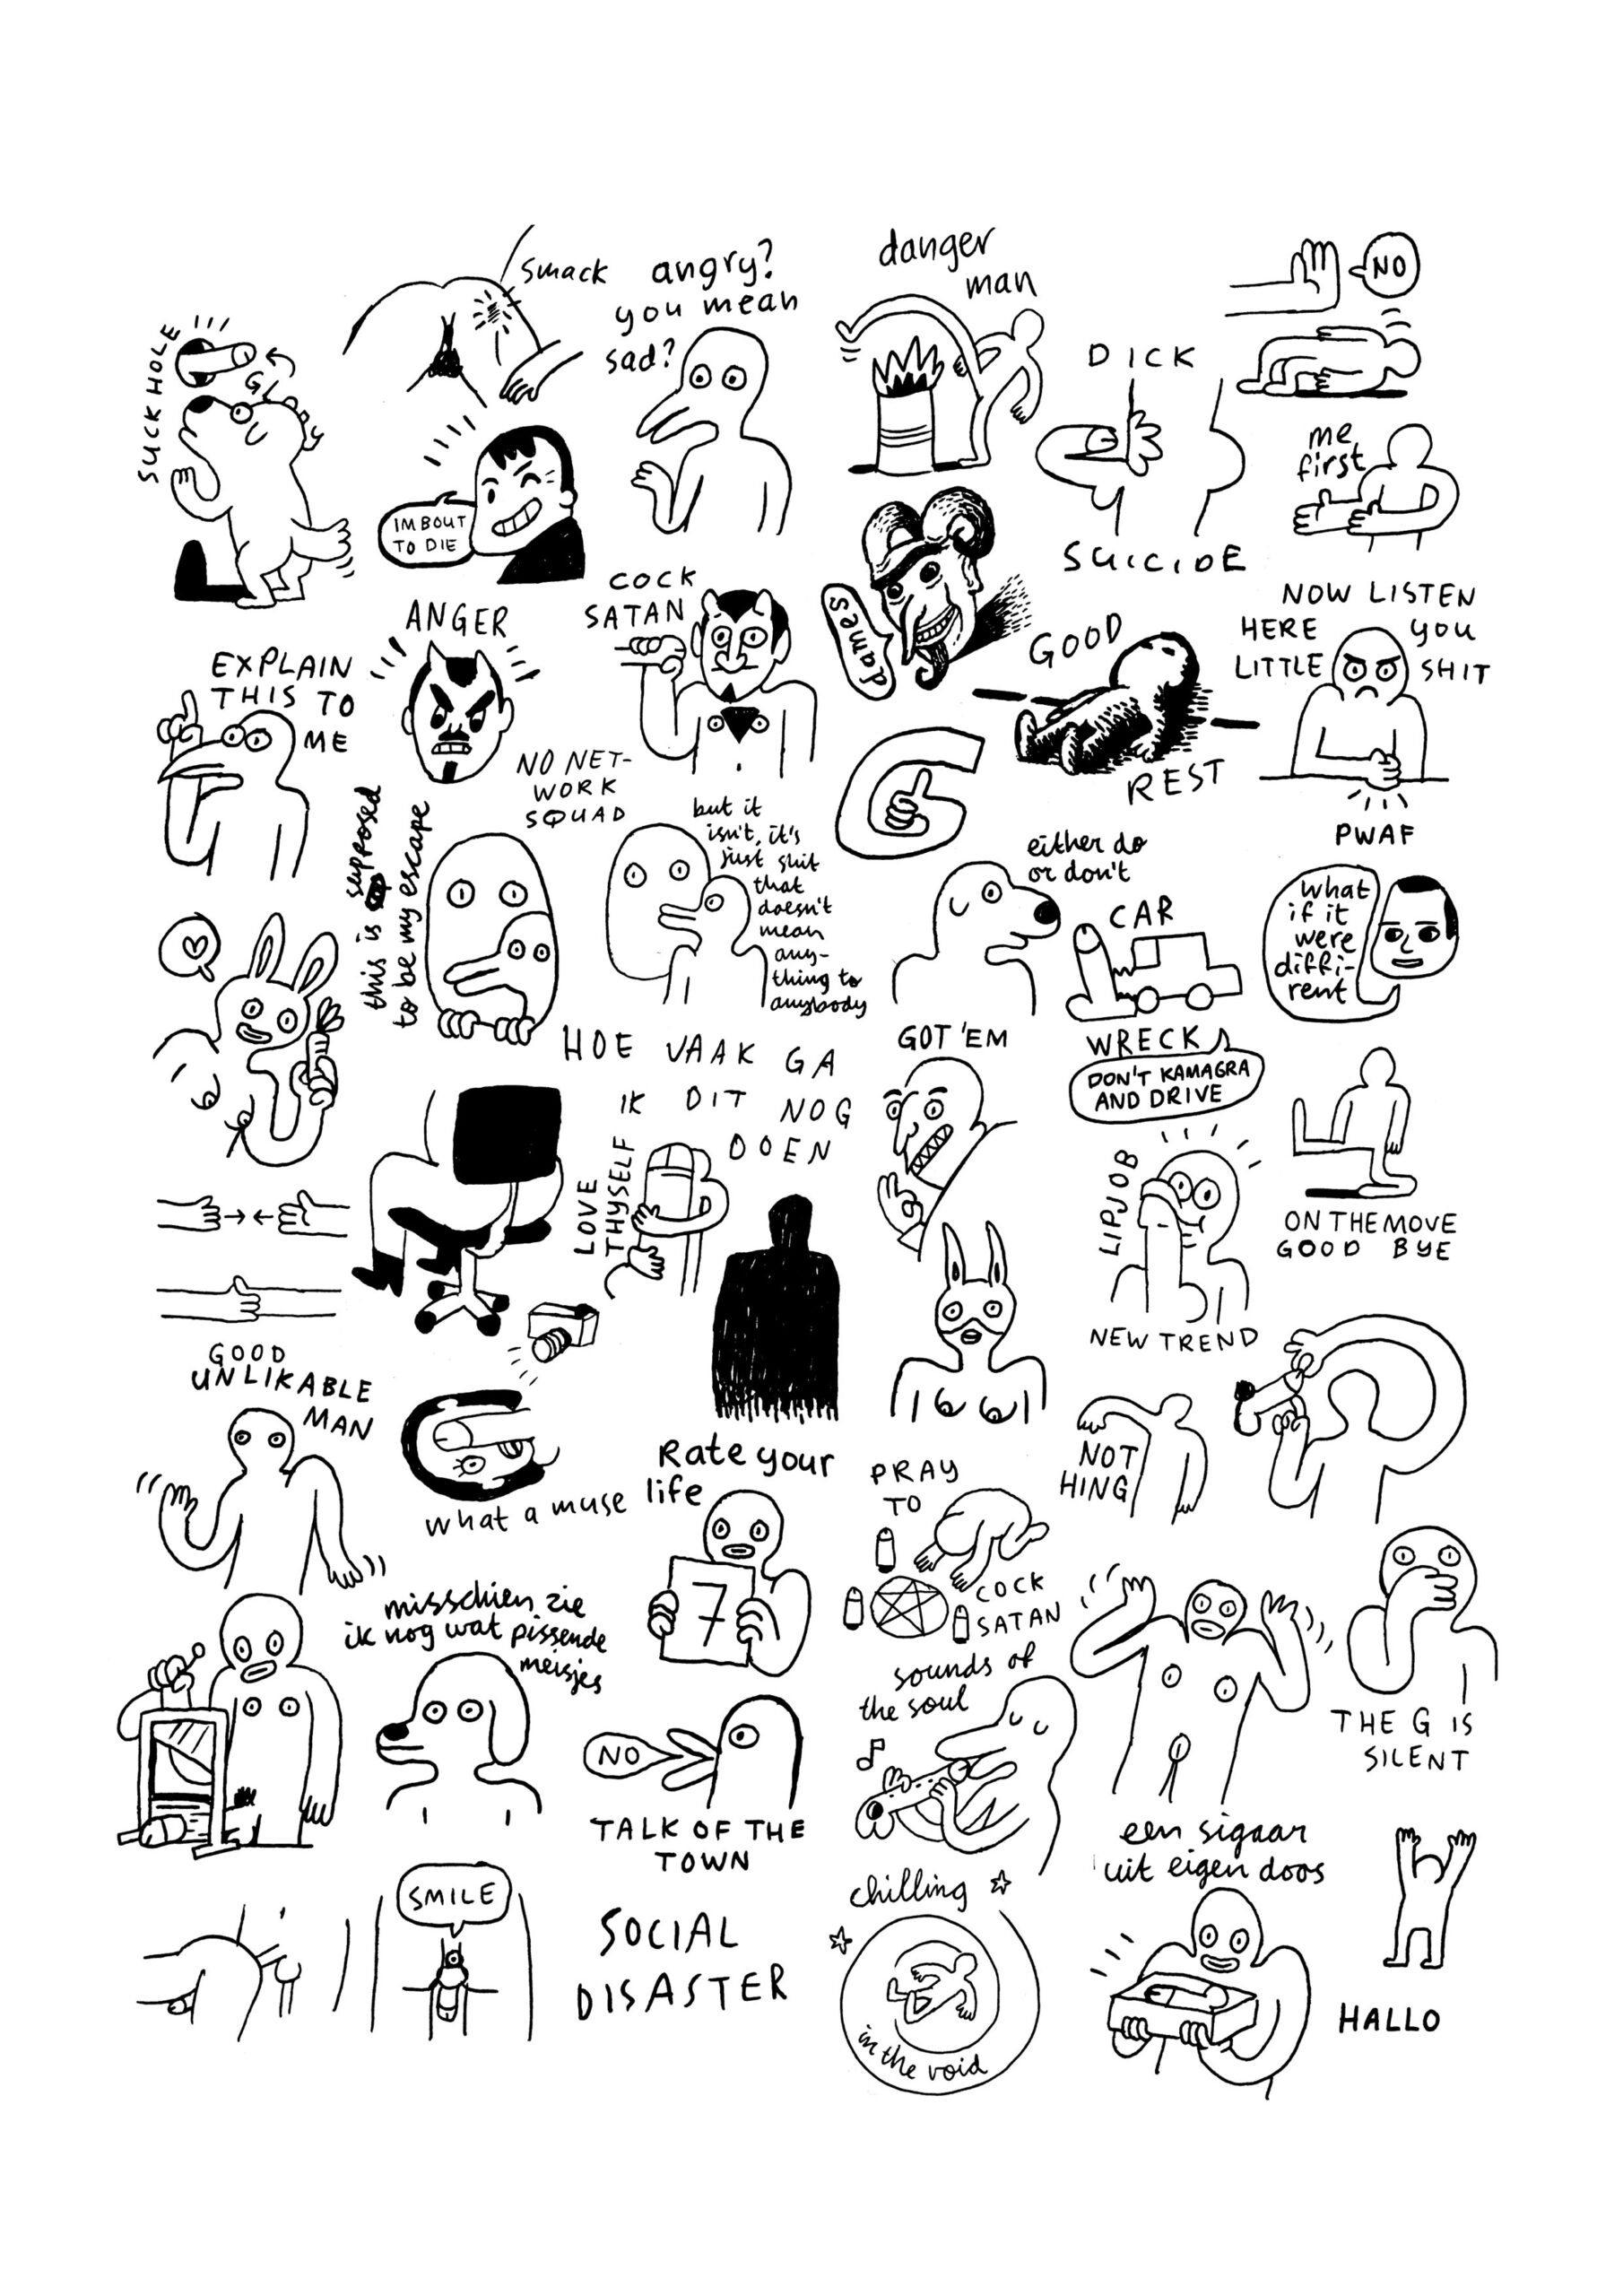 SUCKHOLE
smack
angry?
you mean
sad?
danger
man
NO
DICK
SUICIDE
me
first
IM BOUT
TO DIE
COCK
SATAN
ANGER
EXPLAIN
THIS TO
ME
dames
GOOD
REST
NOW LISTEN
HERE you
LITTLE SHIT
PWAF
NO NET-
WORK
SQUAD
this is supposed
to be my escape
but it
isn't, it's
just shit
that
doesn't
mean
any-
thing to
anybody
G
either do
or don't
CAR
WRECK
what
if it
were
diffi-
rent
HOE VAAK GA
IK DIT NOG
DOEN
GOT 'EM
DON'T KAMAGRA
AND DRIVE
LOVE
THYSELF
LIPJOB
NEW TREND
ON THE MOVE
GOOD BYE
GOOD
UNLIKABLE
MAN
what a muse
Rate your
life
7
PRAY
TO
COCK
SATAN
NOT
HING
misschien zie
ik nog wat pissende
meisjes
NO
TALK OF THE
TOWN
sounds of
the soul
THE G IS
SILENT
SMILE
SOCIAL
DISASTER
chilling
in the void
een sigaar
uit eigen doos
HALLO